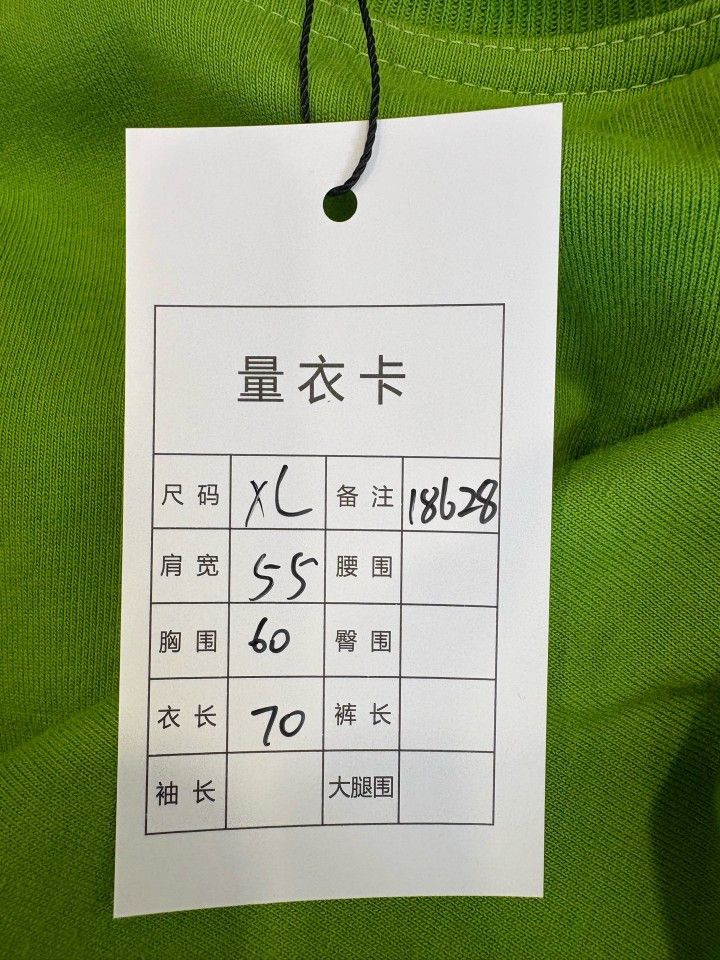 量衣卡
尺码 XL 备注 18628
肩宽 55 腰围
胸围 60 臀围
衣长 70 裤长
袖长 大腿围